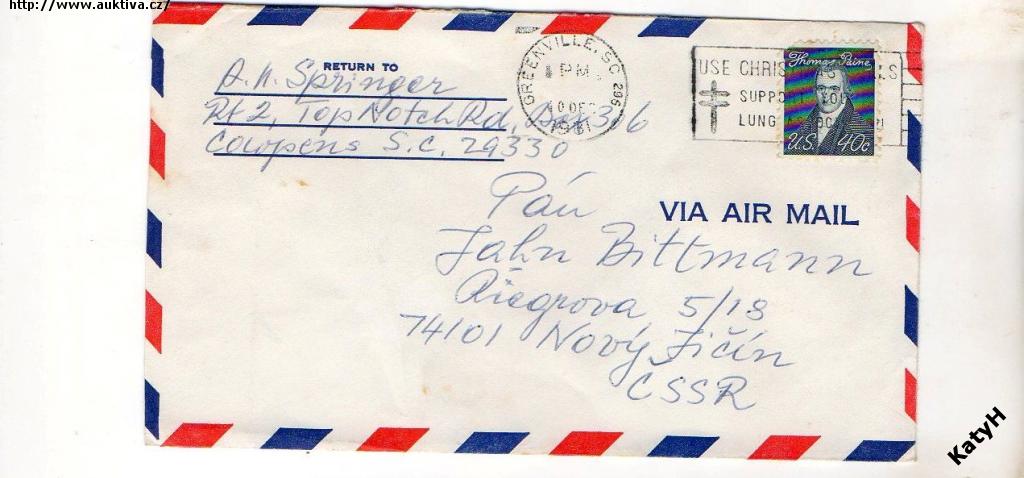 http://www.auktiva.cz/
RETURN TO
A. N. Springer
Rt 2, Top Notch Rd, Box 316
Cowpens S.C. 29330
GREENVILLE, S.C. 296
PM
10 DEC
1981
USE CHRIS
SUPPO
LUNG
Thomas Paine
U.S. 40c
VIA AIR MAIL
Pán
Jahn Bittmann
Riegrova 5/18
74101 Nový Jičín
ČSSR
KatyH